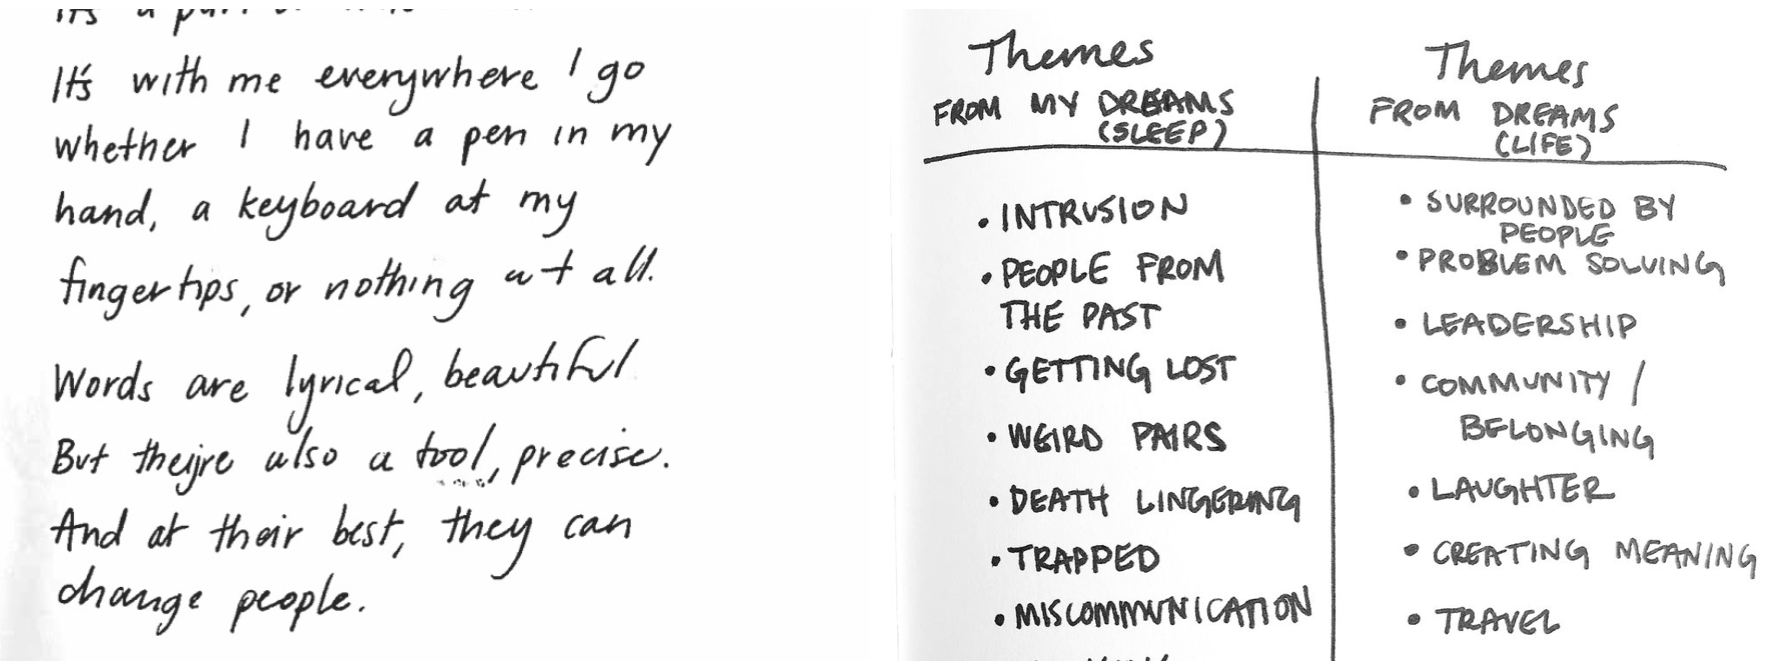 It's a part
It's with me everywhere I go
whether I have a pen in my
hand, a keyboard at my
fingertips, or nothing at all.
Words are lyrical, beautiful
But they're also a tool, precise.
And at their best, they can
change people.
Themes
FROM MY DREAMS
(SLEEP)
• INTRUSION
• PEOPLE FROM
THE PAST
• GETTING LOST
• WEIRD PAIRS
• DEATH LINGERING
• TRAPPED
• MISCOMMUNICATION
Themes
FROM DREAMS
(LIFE)
• SURROUNDED BY
PEOPLE
• PROBLEM SOLVING
• LEADERSHIP
• COMMUNITY /
BELONGING
• LAUGHTER
• CREATING MEANING
• TRAVEL